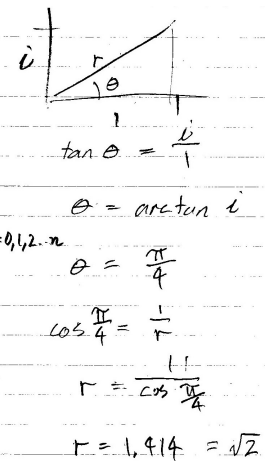 i
r
θ
1
tan θ = i/1
θ = arctan i
=0,1,2..n
θ = π/4
cos π/4 = 1/r
r = 1/cos π/4
r = 1,414 = √2